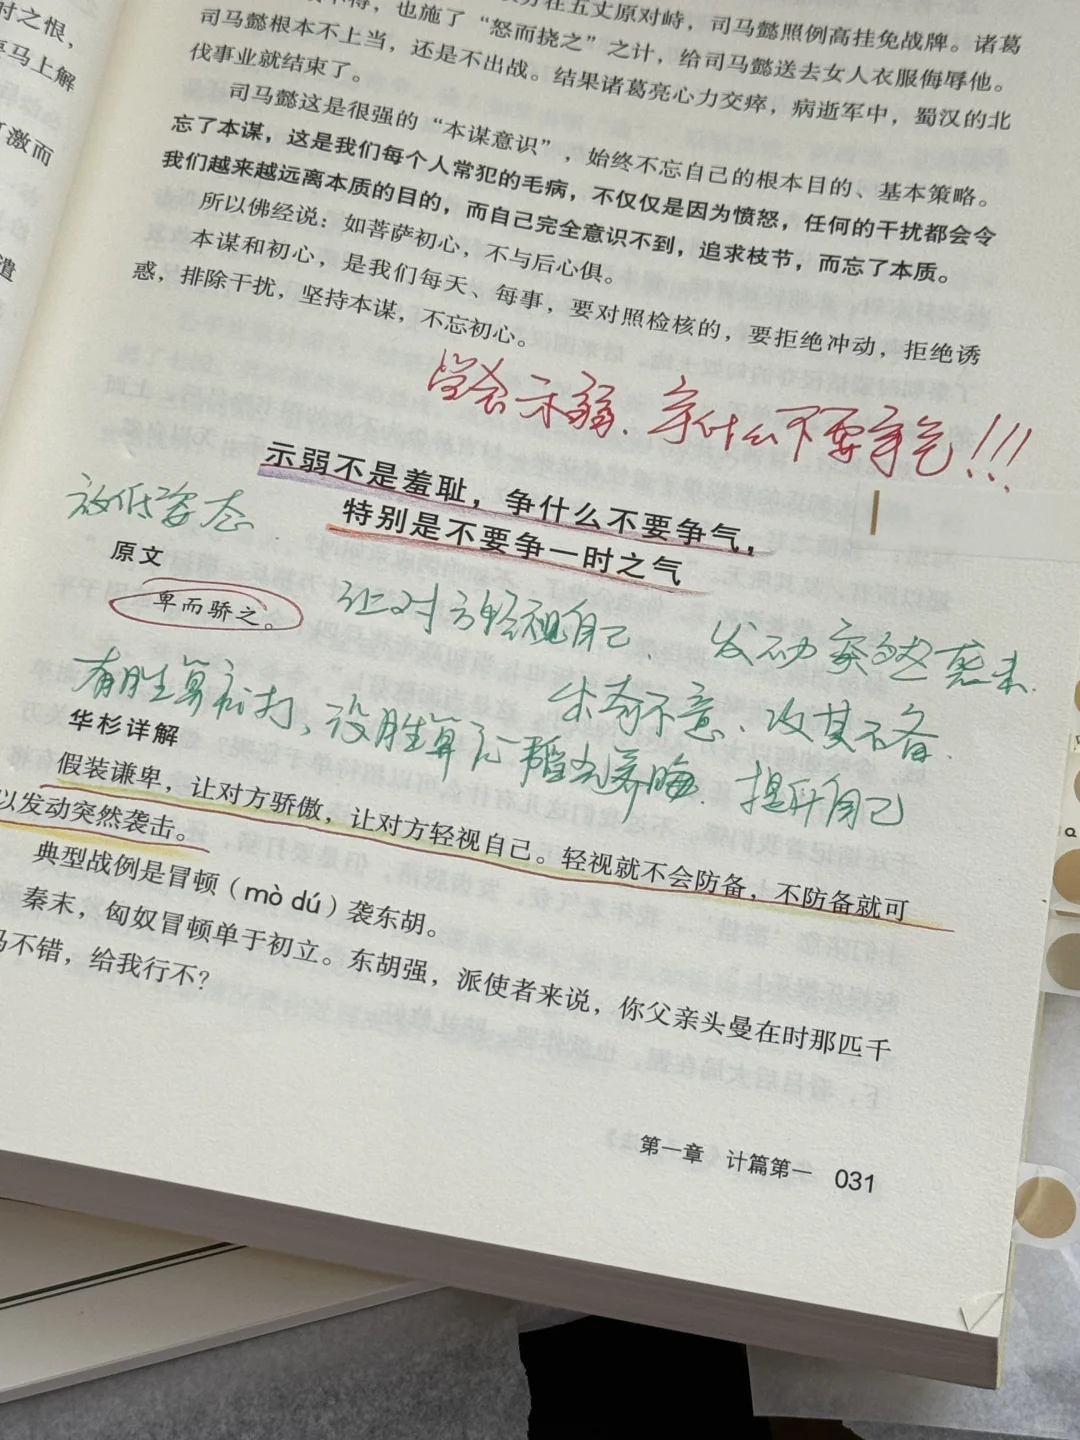 时之恨，
马上解
激而
遣
在五丈原对峙，司马懿照例高挂免战牌。诸葛
也施了“怒而挠之”之计，给司马懿送去女人衣服侮辱他。
司马懿根本不上当，还是不出战。结果诸葛亮心力交瘁，病逝军中，蜀汉的北
伐事业就结束了。
司马懿这是很强的“本谋意识”，始终不忘自己的根本目的、基本策略。
忘了本谋，这是我们每个人常犯的毛病，不仅仅是因为愤怒，任何的干扰都会令
我们越来越远离本质的目的，而自己完全意识不到，追求枝节，而忘了本质。
所以佛经说：如菩萨初心，不与后心俱。
本谋和初心，是我们每天、每事，要对照检核的，要拒绝冲动，拒绝诱
惑，排除干扰，坚持本谋，不忘初心。
学会示弱、争什么不要争气!!!
示弱不是羞耻，争什么不要争气，
特别是不要争一时之气
放低姿态
原文
卑而骄之。
让对方轻视自己、发动突然袭击.
出其不意、攻其不备.
有胜算就打、没胜算就韬光养晦、提升自己
华杉详解
假装谦卑，让对方骄傲，让对方轻视自己。轻视就不会防备，不防备就可
以发动突然袭击。
典型战例是冒顿（mò dú）袭东胡。
秦末，匈奴冒顿单于初立。东胡强，派使者来说，你父亲头曼在时那匹千
马不错，给我行不？
第一章 计篇第一 031